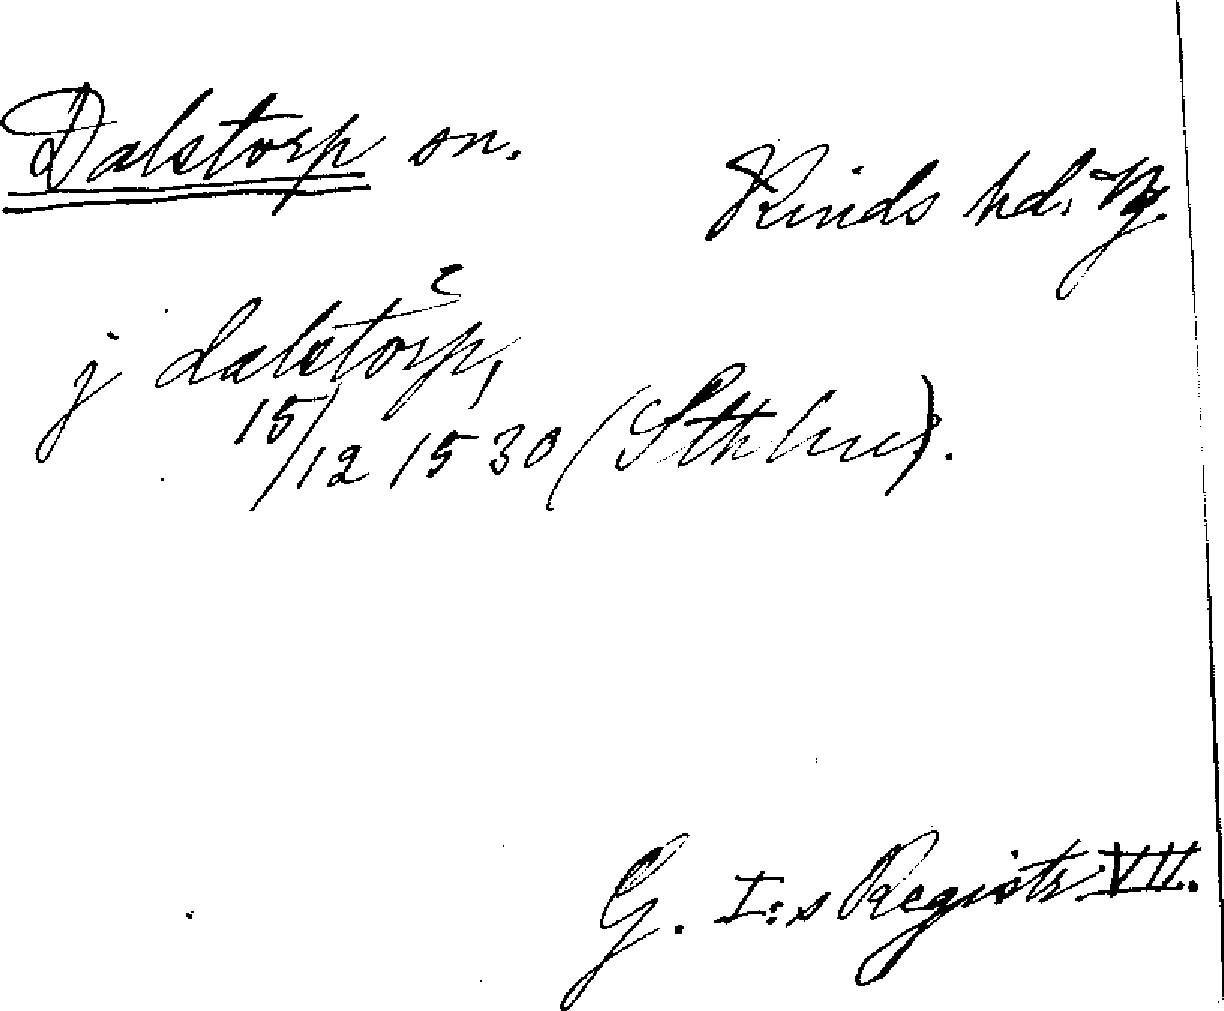 Dalstorp sn.
Kinds hd. Vg.
j dalstorp,
15/12 1530 (Sthlm).
G. I:s Registr. VII.